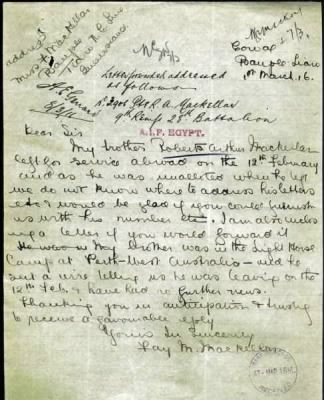 address
Miss F MacKellar
Bauple
Tiaro N.C. Line
Queensland
Bowax
Bauple Line
1st March 16.
Letter forwarded addressed
as follows
No 2906 Pte R. A. Mackellar
9th Reinf 28th Battalion
A.I.F. EGYPT.
Dear Sir
My brother Robert Arthur Mackellar
left for service abroad on the 12th February
and as he was unallotted when he left
we do not know where to address his letters
etc & would be glad if you could furnish
us with his number etc. I am also enclos
ing a letter if you would forward it
My brother was in the Light Horse
Camp at Perth West Australia - and he
sent a wire telling us he was leaving on the
12th Feb. & have had no further news.
Thanking you in anticipation & trusting
to receive a favourable reply
Yours In Sincerity
Fay M. MacKellar